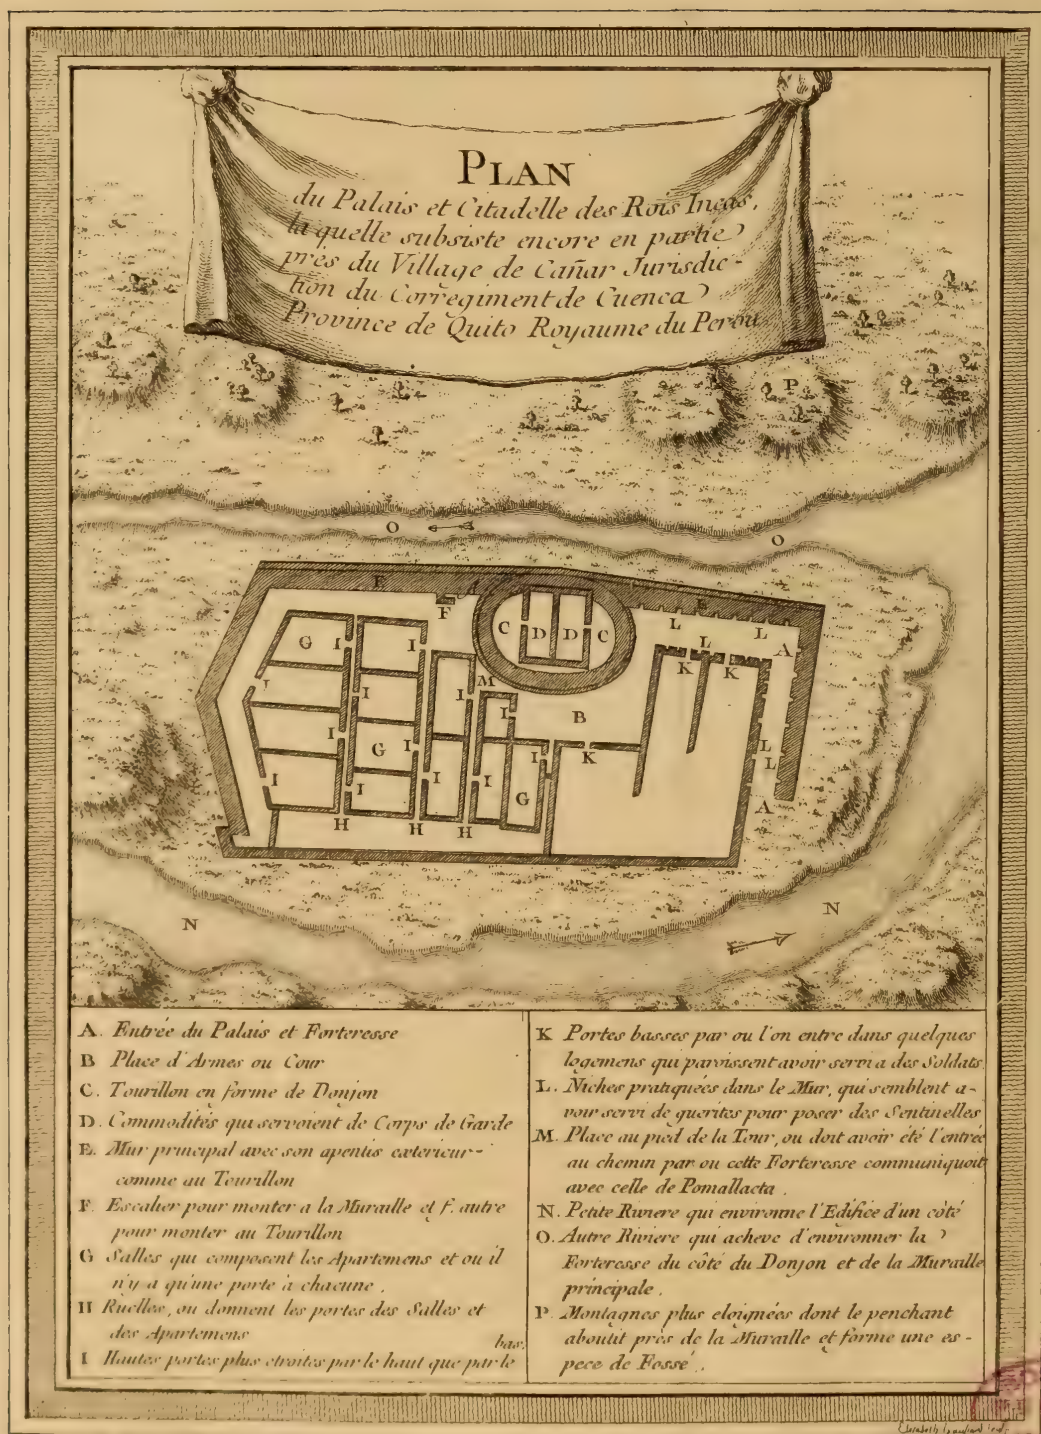 PLAN
du Palais et Citadelle des Rois Incas,
la quelle subsiste encore en partie
près du Village de Cañar Jurisdic-
tion du Corregiment de Cuenca
Province de Quito Royaume du Perou
P
O
O
E
F
E
C
D
D
C
L
L
L
A
G
I
I
K
K
M
I
I
I
I
B
I
G
I
I
K
L
L
I
I
I
I
G
A
H
H
H
N
N
A. Entrée du Palais et Forteresse
B Place d'Armes ou Cour
C. Tourillon en forme de Donjon
D. Commodités qui servoient de Corps de Garde
E. Mur principal avec son apentis exterieur-
comme au Tourillon
F Escalier pour monter a la Muraille et f. autre
pour monter au Tourillon
G Salles qui composent les Apartemens et ou il
n'y a qu'une porte à chacune.
H Ruelles, ou donnent les portes des Salles et
des Apartemens
bas.
I Hautes portes plus etroites par le haut que par le
K Portes basses par ou l'on entre dans quelques
logemens qui paroissent avoir servi a des Soldats.
L. Niches pratiquées dans le Mur, qui semblent a-
voir servi de guerites pour poser des Sentinelles
M. Place au pied de la Tour, ou doit avoir été l'entrée
au chemin par ou cette Forteresse communiquoit
avec celle de Pomallacta.
N. Petite Riviere qui environne l'Edifice d'un côté
O. Autre Riviere qui acheve d'environner la
Forteresse du côté du Donjon et de la Muraille
principale.
P. Montagnes plus eloignées dont le penchant
aboutit près de la Muraille et forme une es-
pece de Fossé.